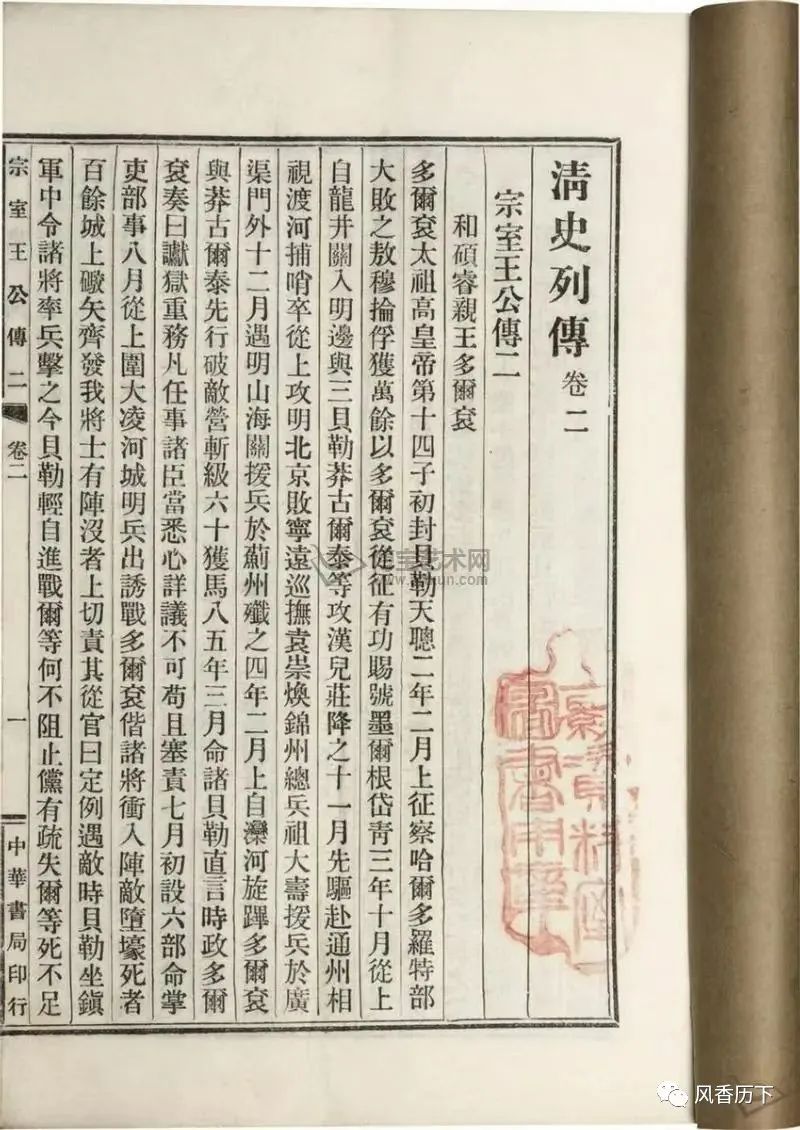 清史列傳卷二
宗室王公傳二
和碩睿親王多爾袞
多爾袞太祖高皇帝第十四子初封貝勒天聰二年二月上征察哈爾多羅特部
大敗之敖穆掄俘獲萬餘以多爾袞從征有功賜號墨爾根岱青三年十月從上
自龍井關入明邊與三貝勒莽古爾泰等攻漢兒莊降之十一月先驅赴通州相
視渡河捕哨卒從上攻明北京敗寧遠巡撫袁崇煥錦州總兵祖大壽援兵於廣
渠門外十二月遇明山海關援兵於薊州殲之四年二月上自灤河旋蹕多爾袞
與莽古爾泰先行破敵營斬級六十獲馬八五年三月命諸貝勒直言時政多爾
袞奏曰讞獄重務凡任事諸臣當悉心詳議不可苟且塞責七月初設六部命掌
吏部事八月從上圍大凌河城明兵出誘戰多爾袞偕諸將衝入陣敵墮壕死者
百餘城上礮矢齊發我將士有陣沒者上切責其從官曰定例遇敵時貝勒坐鎮
軍中令諸將率兵擊之今貝勒輕自進戰爾等何不阻止儻有疏失爾等死不足
宗室王公傳二 卷二 一 中華書局印行
风香历下